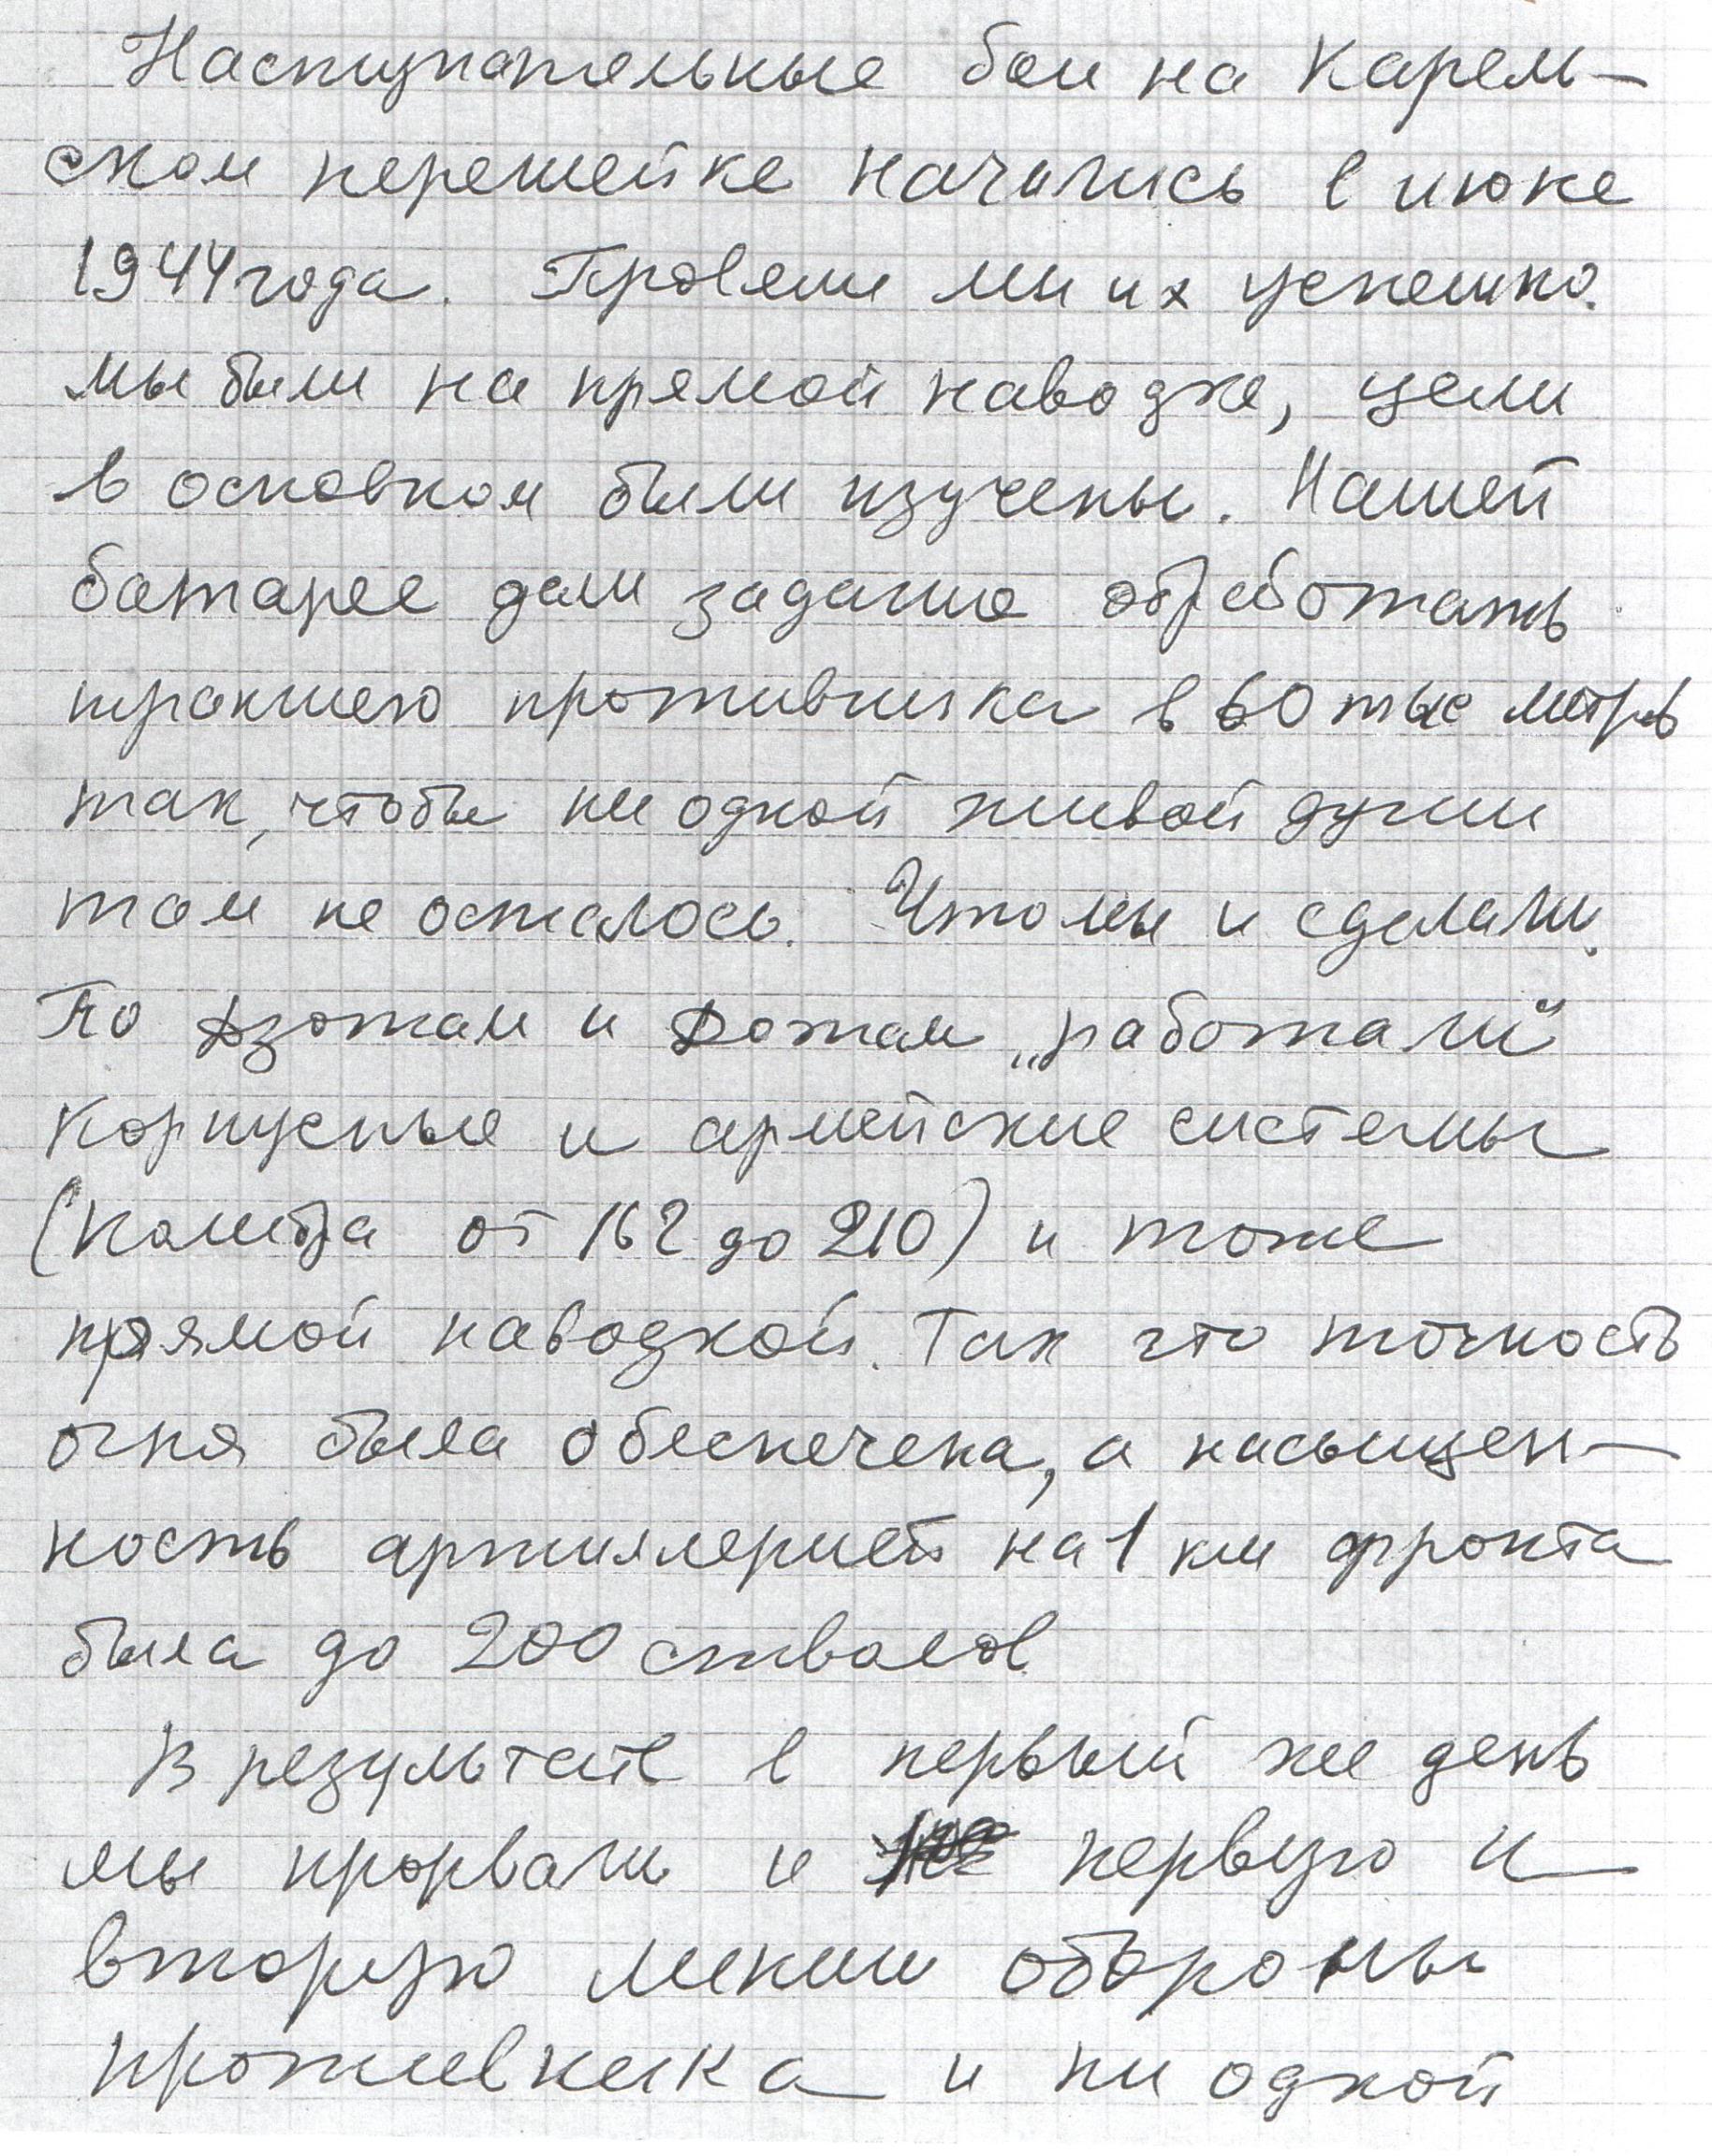 Наступательные бои на Карель-
ском перешейке начались в июне
1944 года. Провели мы их успешно.
мы были на прямой наводке, цели
в основном были изучены. Нашей
батарее дали задание обработать
траншею противника в 60 тыс метров
так, чтобы ни одной живой души
там не осталось. Что мы и сделали.
По Дзотам и Дотам „работали"
корпусные и армейские системы
(калибра от 162 до 210) и тоже
прямой наводкой. Так что точность
огня была обеспечена, а насыщен-
ность артиллерией на 1 км фронта
была до 200 стволов.
В результате в первый же день
мы прорвали и первую и
вторую линии обороны
противника и ни одной